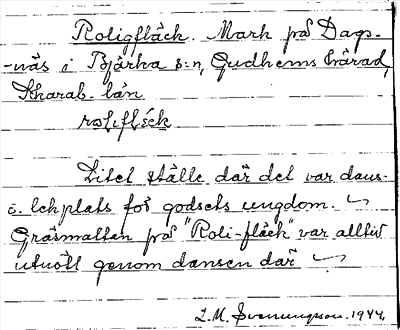 Roligfläck. Mark på Dags-
-näs i Bjärka s:n, Gudhems härad,
Skarab. län

Litet ställe där det var dans-
o. lekplats för godsets ungdom.
Gräsmattan på "Roli-fläck" var alltid
utnött genom dansen där
L.M. Svenungsson. 1944.